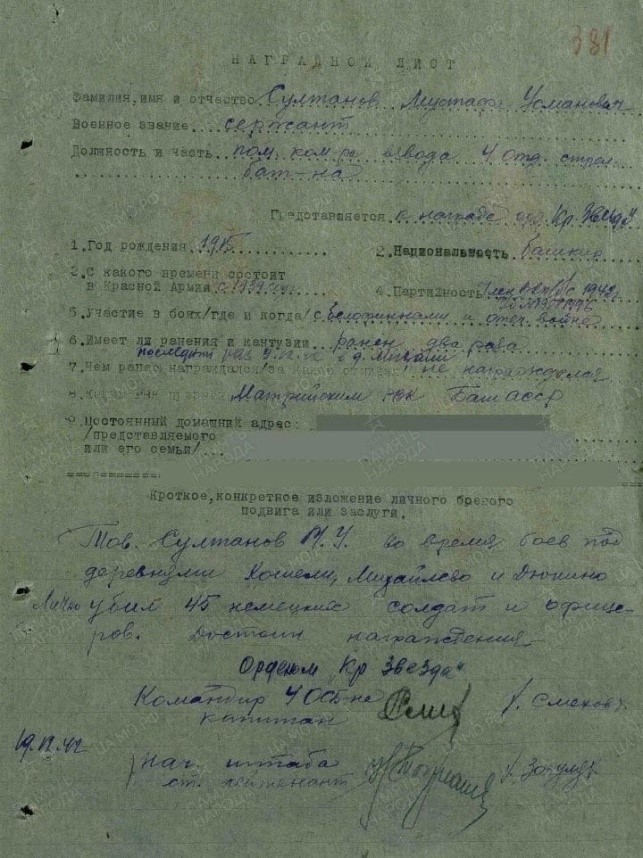 381
НАГРАДНОЙ ЛИСТ
Фамилия, имя и отчество Султанов Мустафа Усманович
Военное звание сержант
Должность и часть пом. ком-ра взвода 4 отд. стрел.
бат-на
Представляется к награде орд. Кр. Звезда
1. Год рождения 1915 2. Национальность башкир
3. С какого времени состоит
в Красной Армии с 1939 4. Партийность с 1942
5. Участие в боях/где и когда/ с белофиннами и отеч. война
6. Имеет ли ранения и контузии ранен два раза
последний раз
7. Чем ранее награждался/за какие отличия/ не награждался
8. Каким РВК призван РВК Баш АССР
9. Постоянный домашний адрес:
/представляемого
или его семьи/
Кроткое, конкретное изложение личного боевого
подвига или заслуги.
Тов. Султанов М. У. во время боев под
деревнями Михайлево и Дюкино
Лично убил 45 немецких солдат и офице-
ров. Достоин награждения
Орденом "Кр Звезда"
Командир 4 ОСБ-на
капитан
нач. штаба
ст. лейтенант